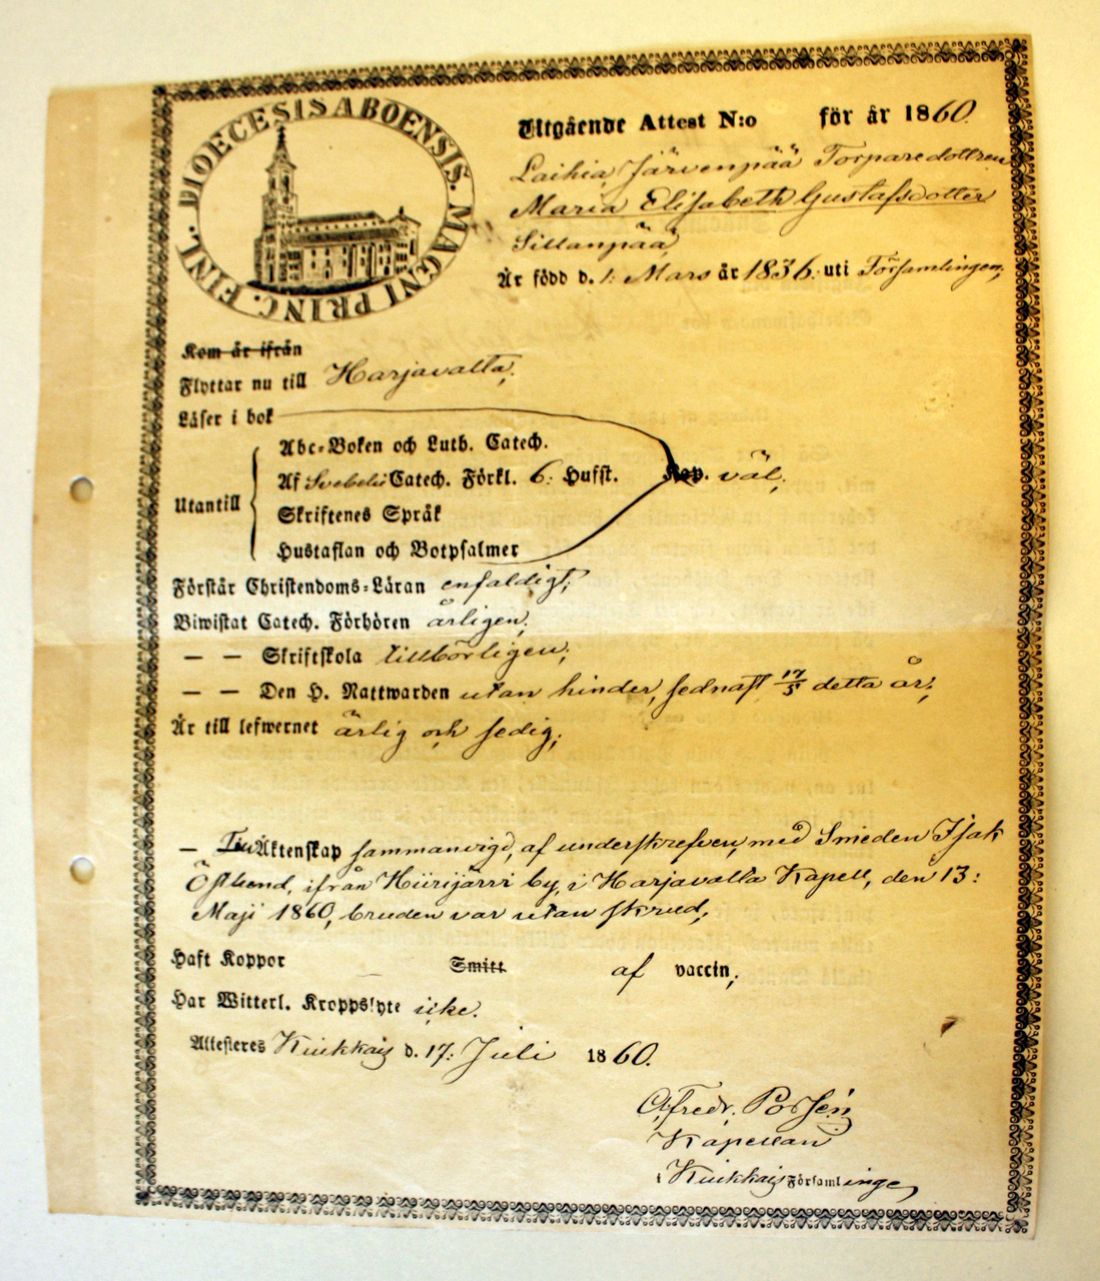 DIOECESIS ABOENSIS. MAGNI PRINC. FINL.
Utgående Attest N:o för år 1860.
Laihia, Järvenpää Torparedottren
Maria Elisabeth Gustafsdotter
Sillanpää,
Är född d. 1: Mars år 1836: uti Församlingen,
Kom år ifrån
Flyttar nu till Harjavalta,
Läser i bok
Abc-Boken och Luth. Catech.
Utantill Af Svebelii Catech. Förkl. 6: Hufst. väl,
Skriftenes Språk
Hustaflan och Botpsalmer
Förstår Christendoms-Läran enfaldigt,
Biwistat Catech. Förhören årligen,
— — Skriftskola tillbörligen,
— — Den H. Nattwarden utan hinder, sednast 17/5 detta år,
Är till lefwernet ärlig och sedig,
— Till Äktenskap sammanvigd, af underskrefven, med Smeden Isak
Östbend, ifrån Hiirijärvi by, i Harjavalta Kapell, den 13:
Maji 1860, bruden var utan skrud,
Haft Koppor — Smitt af vaccin,
Har Witterl. Kroppslyte icke.
Attesteres Kiukkais d. 17: Juli 1860.
Kapellan
i Kiukkais Församlinge,